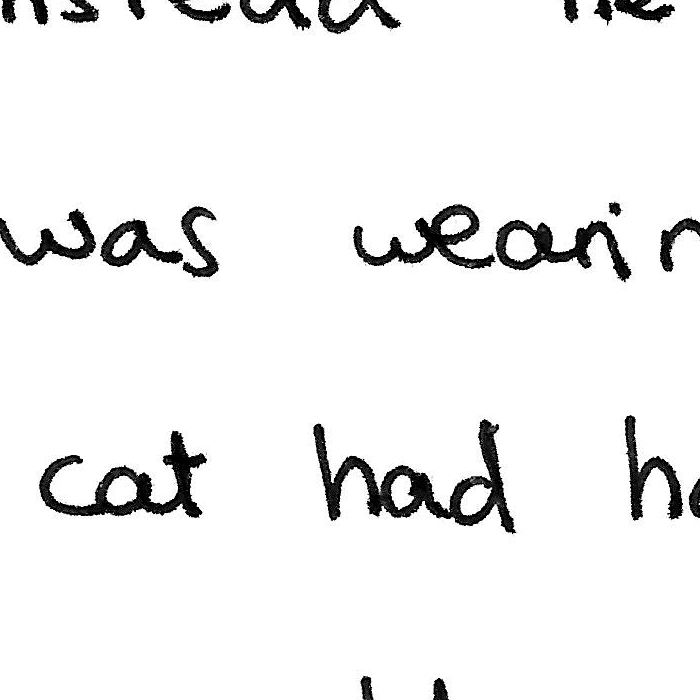 instead he
was wearin
cat had ha